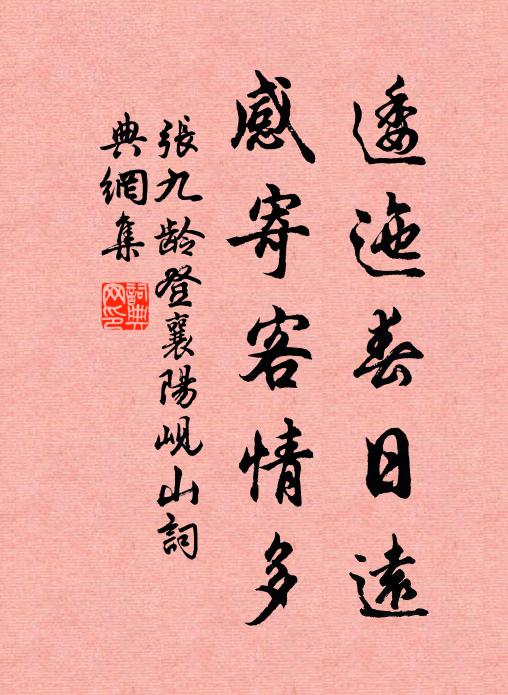 逶迤春日遠
感寄客情多
張九龄登襄陽峴山詞
典網集
詞典網印